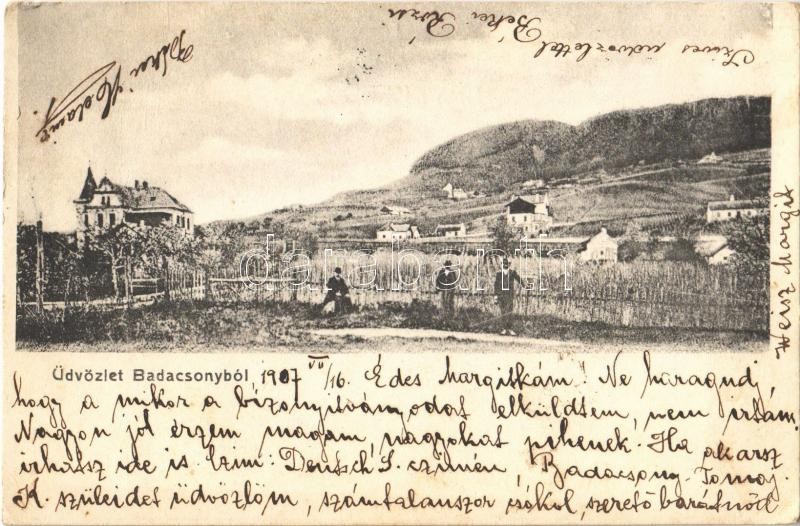 Szives üdvözlettel Békei Rózsi
Üdvözlet Badacsonyból, 1907 VII/16. Édes Margitkám! Ne haragudj,
hogy a mikor a bizonyitványodat elküldtem, nem irtam.
Nagyon jól érzem magam, nagyokat pihenek. Ha akarsz
irhatsz ide is. Izim: Deutsch S. czimén, Badacsony-Tomaj.
K. szüleidet üdvözlöm, számtalanszor csókol, szerető barátnőd
Weisz Margit
darabanth